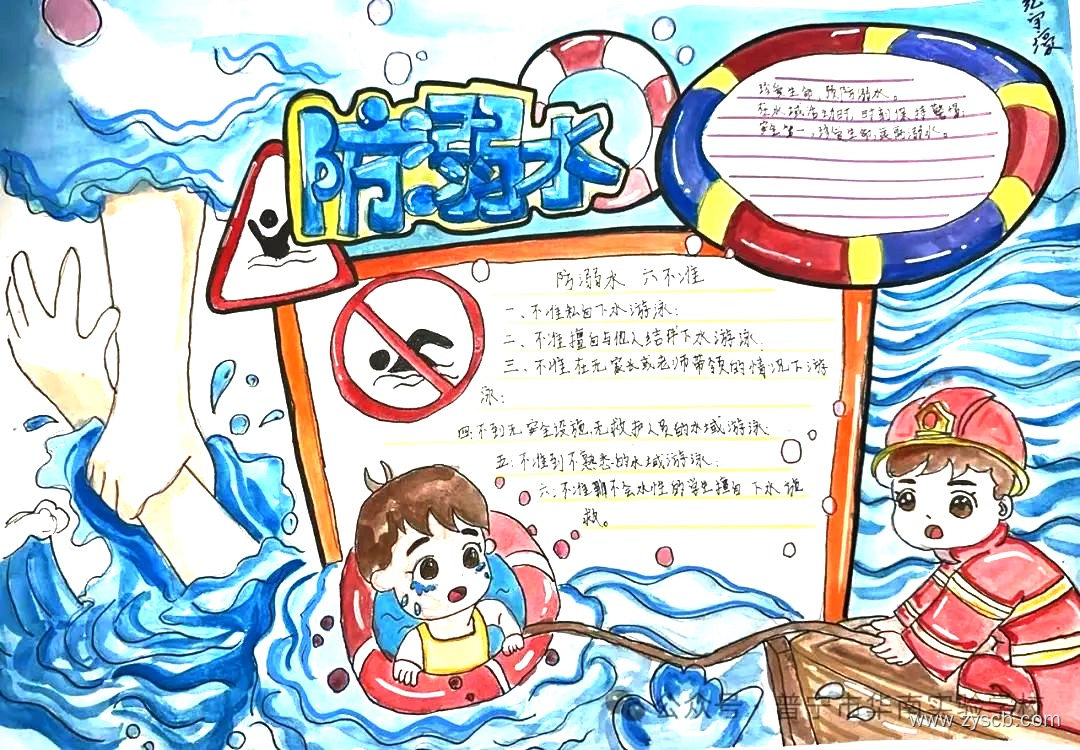 防溺水
珍爱生命,预防溺水。
在水域活动时,时刻保持警惕,
安全第一,珍爱生命,远离溺水。
防溺水 六不准
一、不准私自下水游泳;
二、不准擅自与他人结伴下水游泳
三、不准在无家长或老师带领的情况下游
泳;
四:不到无安全设施、无救护人员的水域游泳
五:不准到不熟悉的水域游泳;
六:不准 不会水性的学生擅自下水施
救。
公众号·普宁市华南实验学校
www.zyscb.com